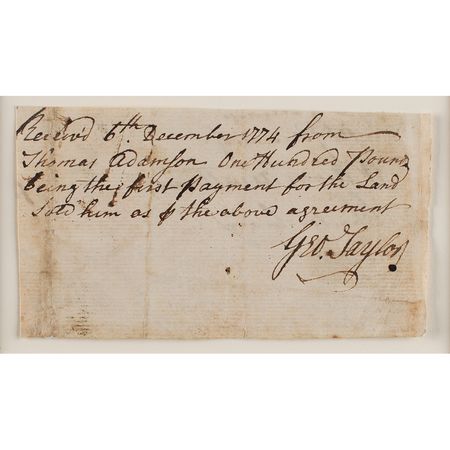 Receivd 6th. December 1774 from
Thomas Adamson One Hundred Pounds
being the first Payment for the Land
sold him as ⅌ the above agreement
Geo. Taylor